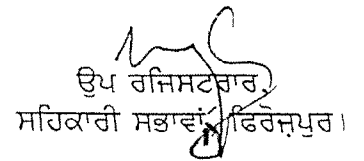 ਉਪ ਰਜਿਸਟਰਾਰ,
ਸਹਿਕਾਰੀ ਸਭਾਵਾਂ ਫਿਰੋਜ਼ਪੁਰ।